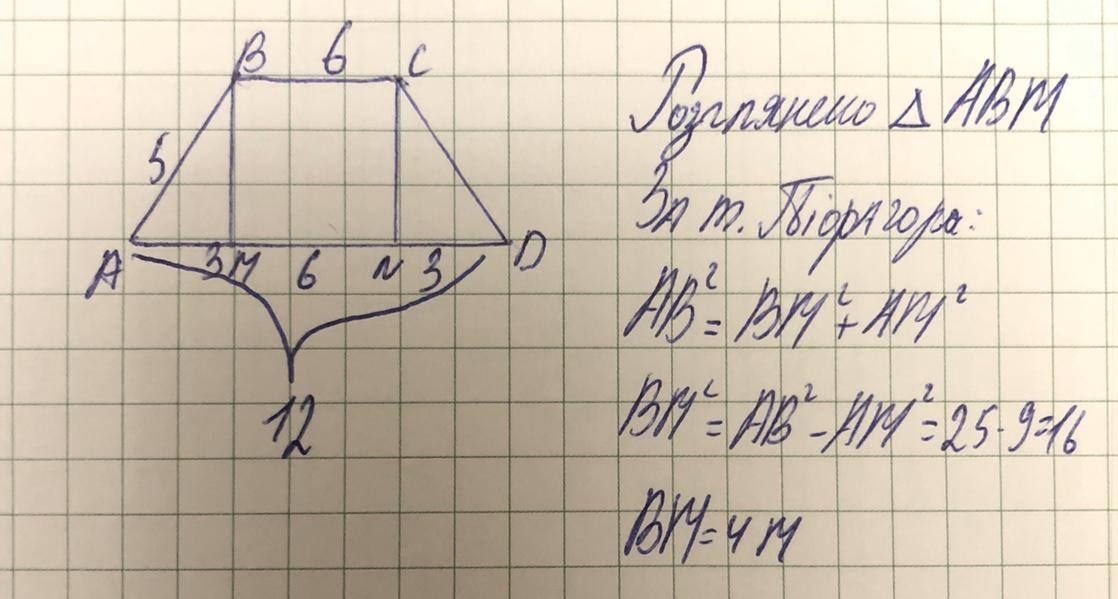 B 6 C
5
A 3 M 6 N 3 D
12
Розглянемо Δ ABM
За т. Піфагора:
AB² = BM² + AM²
BM² = AB² - AM² = 25 - 9 = 16
BM = 4 м